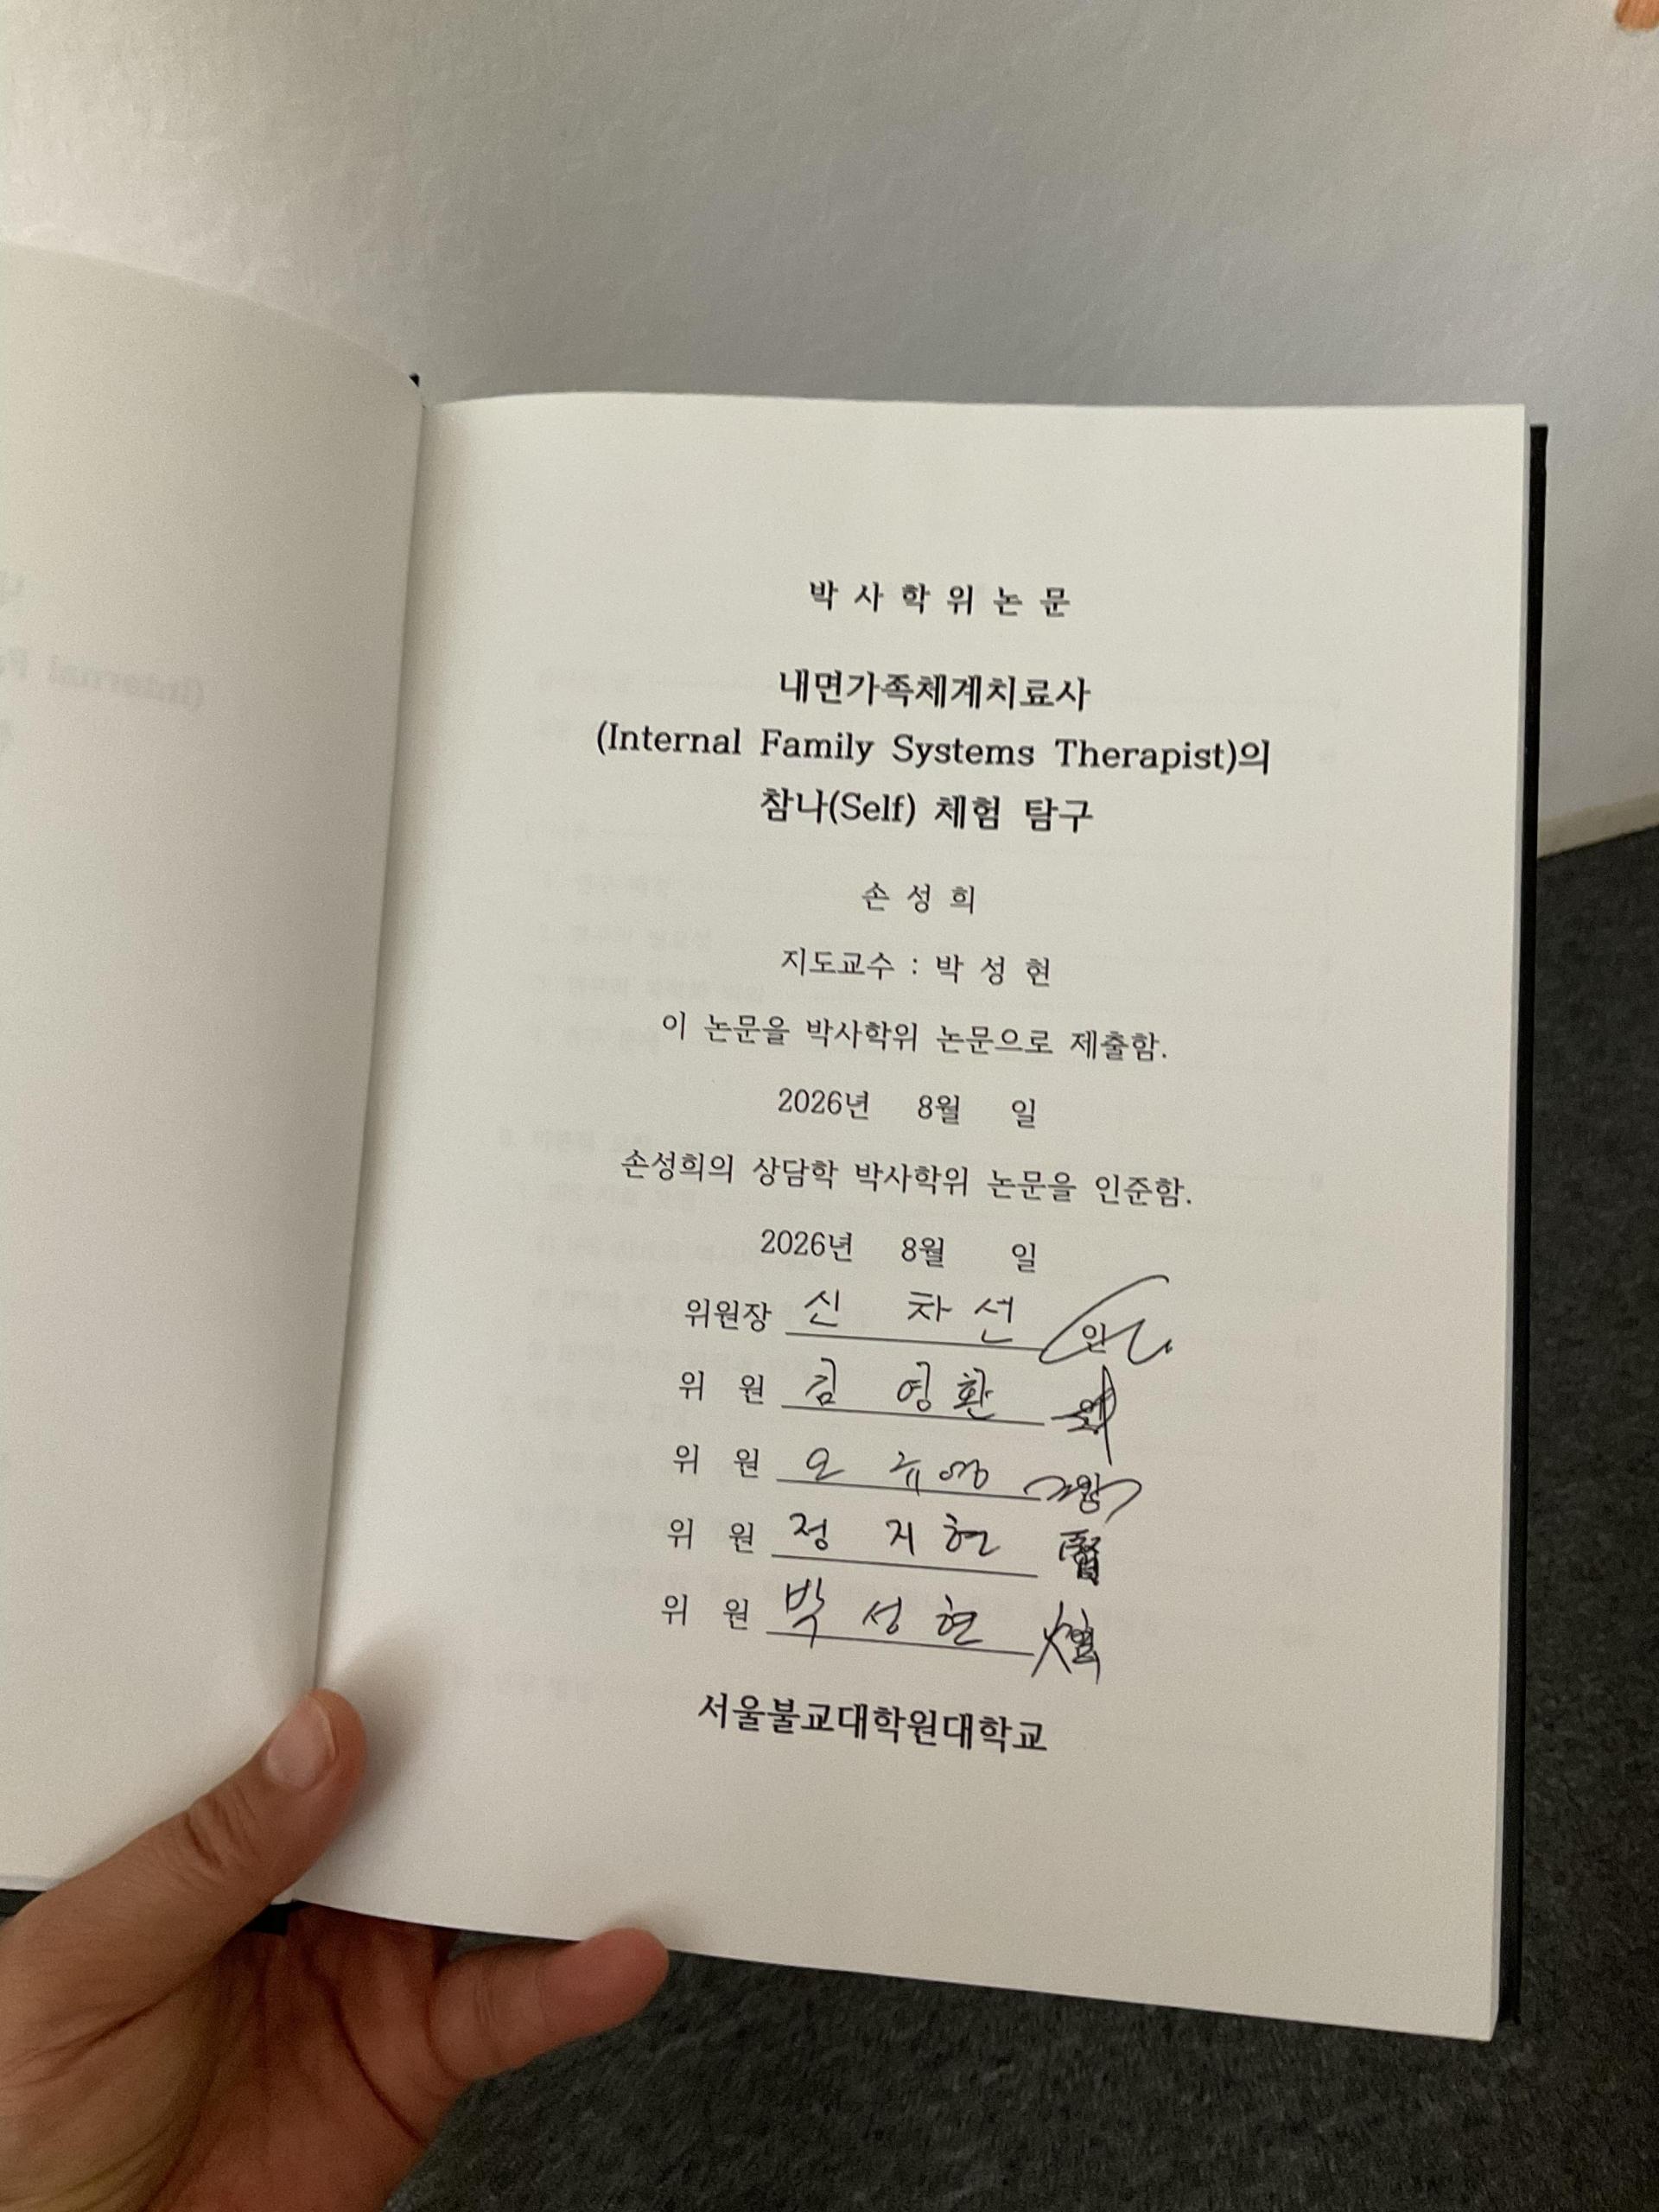 박 사 학 위 논 문
내면가족체계치료사
(Internal Family Systems Therapist)의
참나(Self) 체험 탐구
손 성 희
지도교수 : 박 성 현
이 논문을 박사학위 논문으로 제출함.
2026년 8월 일
손성희의 상담학 박사학위 논문을 인준함.
2026년 8월 일
위원장 신 차 선 인
위 원 김 영 환
위 원 오
위 원 정 지 현
위 원 박 성 현
서울불교대학원대학교